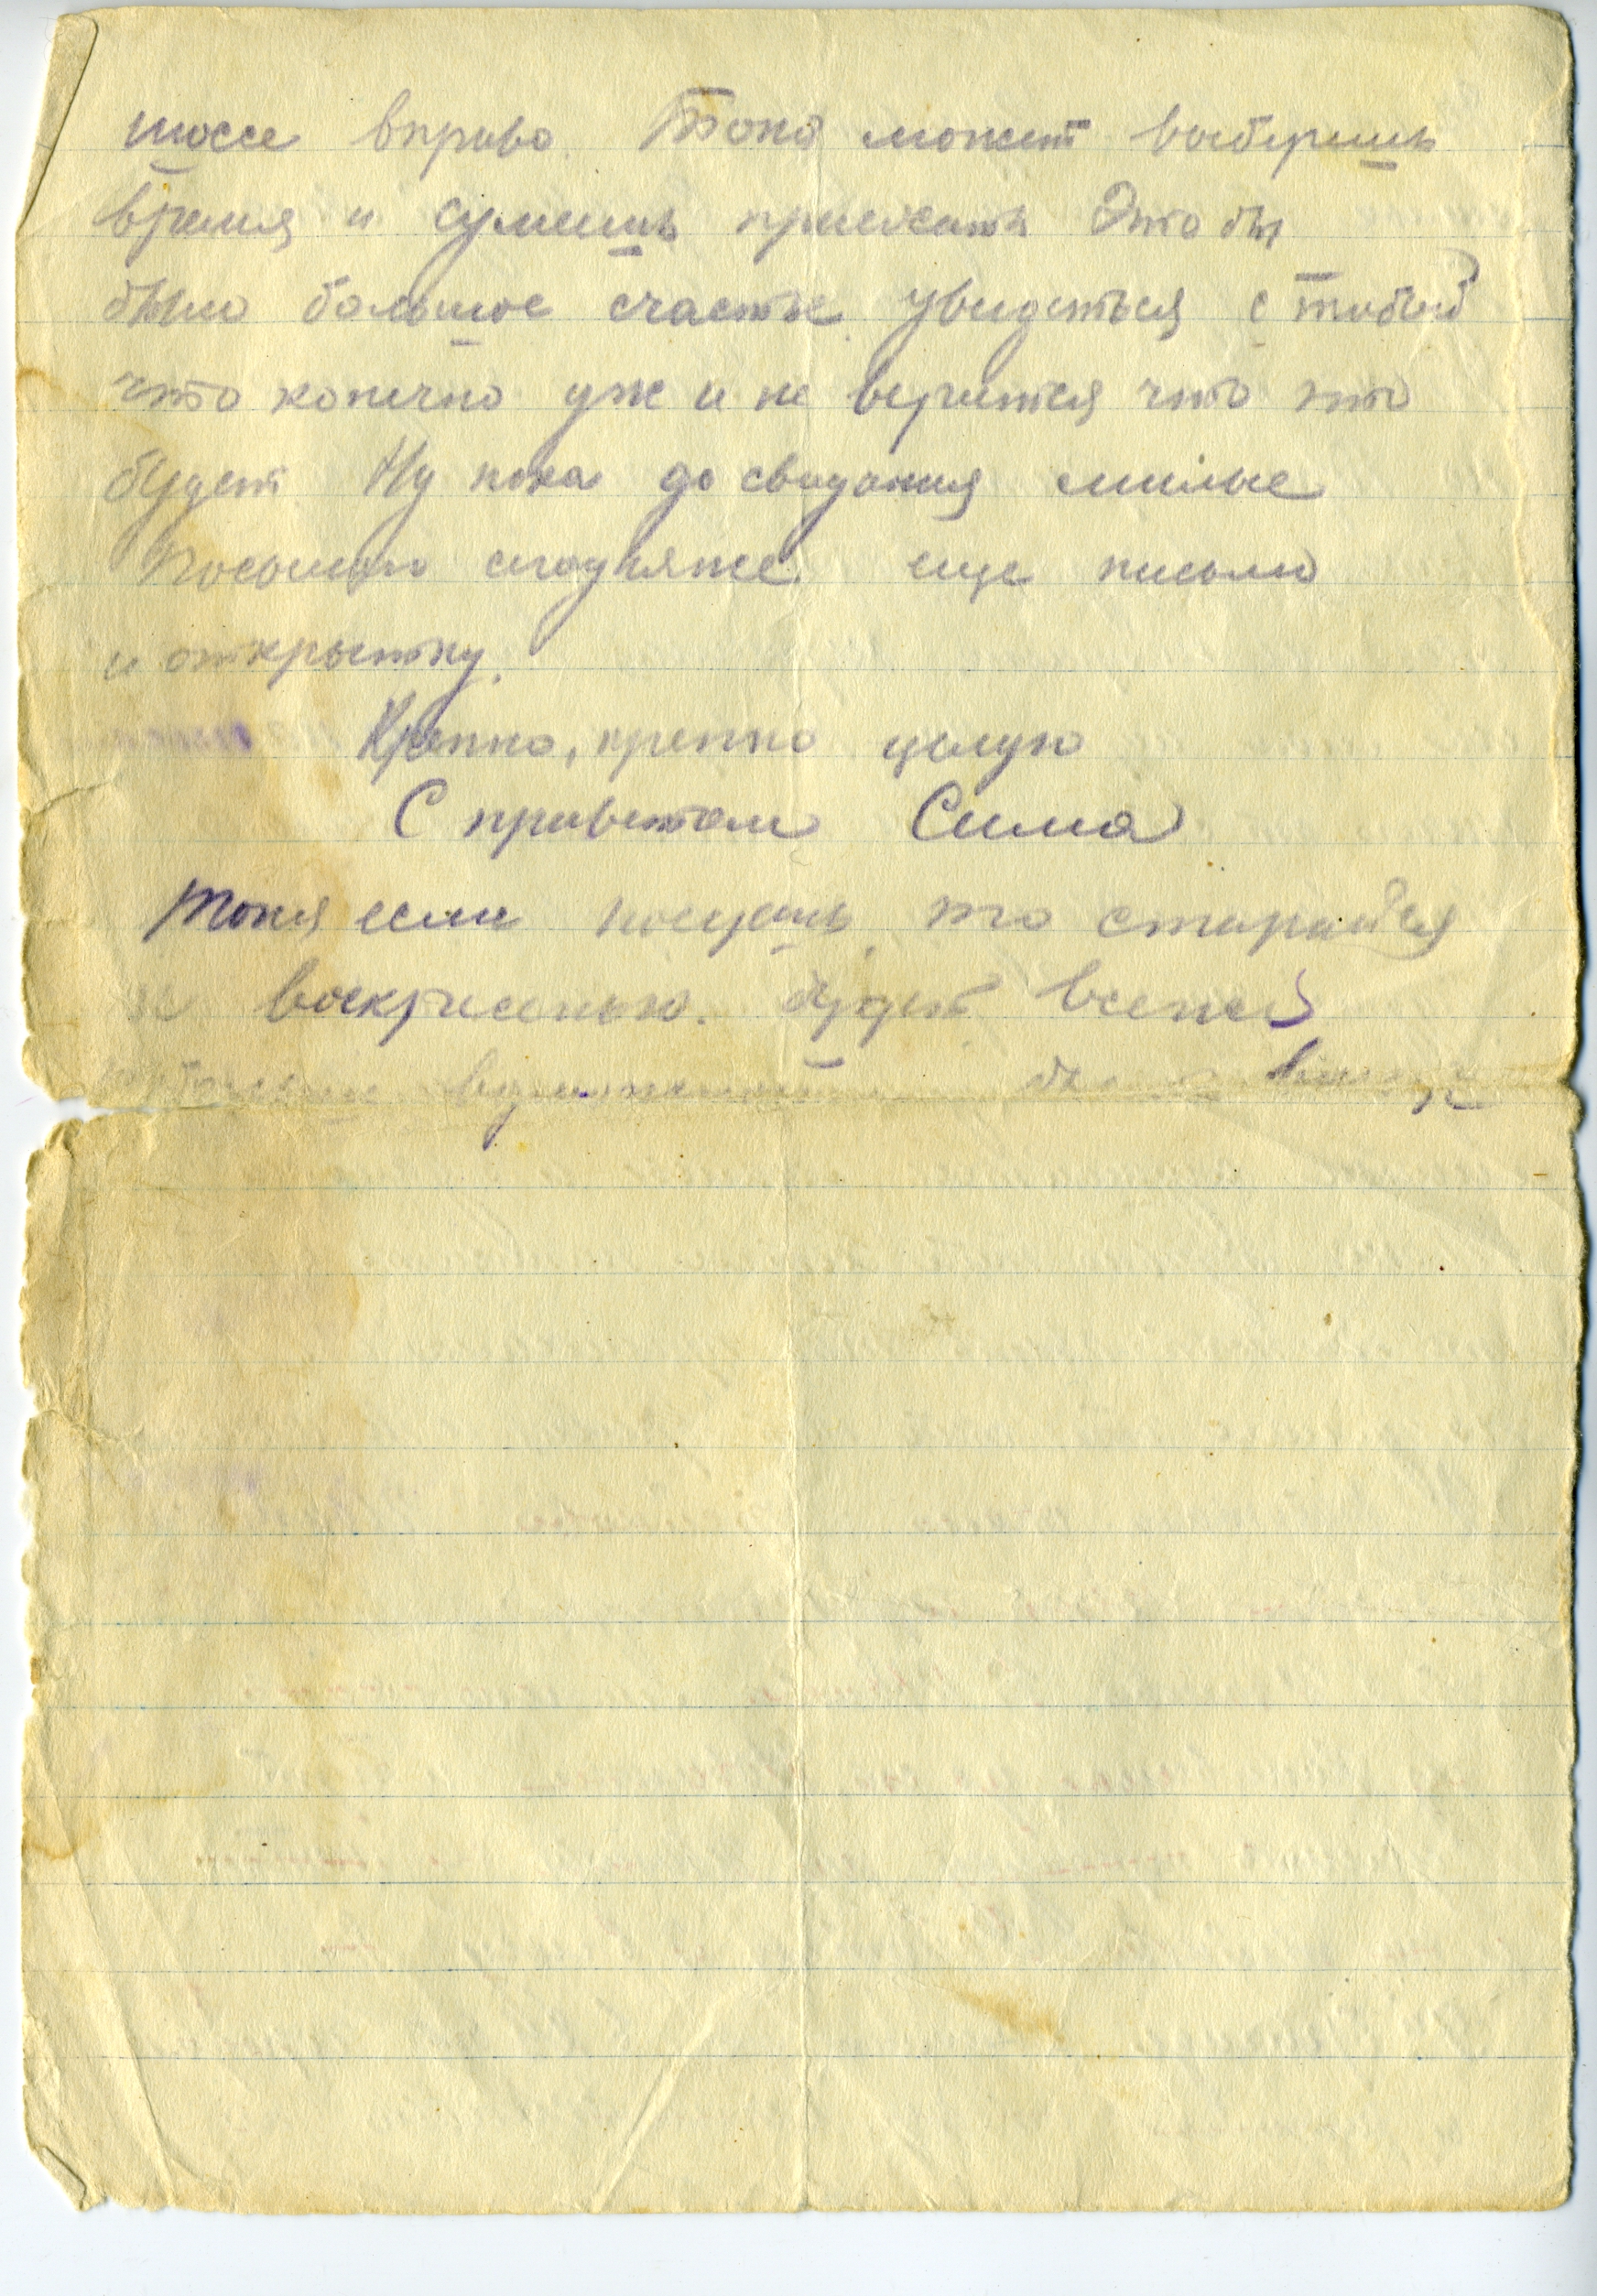 шоссе вправо. Тоня может выберешь
время и сумеешь приехать Это бы
было большое счастье увидеться с тобой
что конечно уж и не верится что это
будет Ну пока до свидания милые
Посылаю сегодняже еще письмо
и открытку.
Крепко, крепко целую
С приветом Сима
Тоня если поедешь то старайся
к воскрисенью. будет